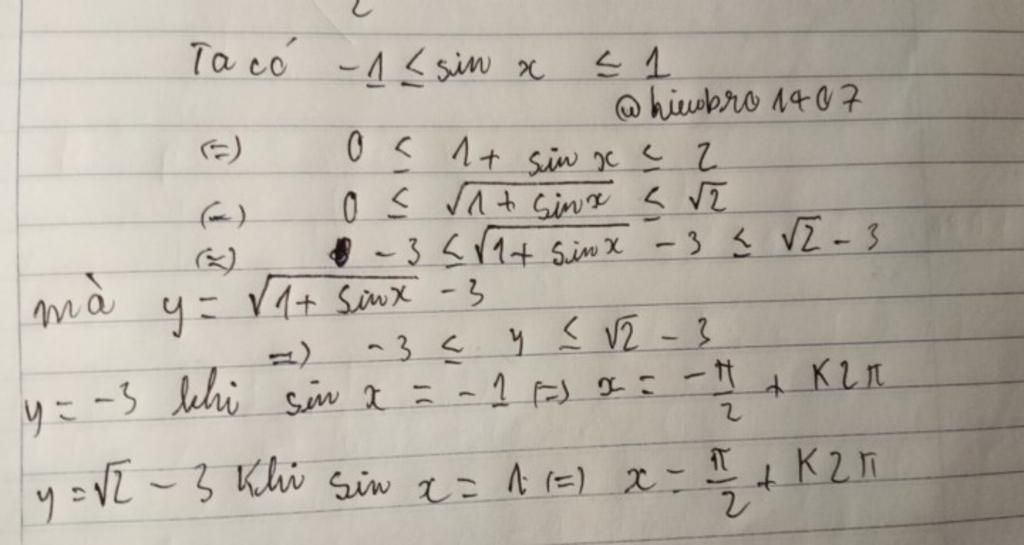 Ta có -1 ≤ sin x ≤ 1
@hieubro1407
(=) 0 ≤ 1 + sin x ≤ 2
(=) 0 ≤ √(1 + sin x) ≤ √2
(=) -3 ≤ √(1 + sin x) - 3 ≤ √2 - 3
mà y = √(1 + sin x) - 3
=) -3 ≤ y ≤ √2 - 3
y = -3 khi sin x = -1 (=) x = -π/2 + K2π
y = √2 - 3 Khi sin x = 1 (=) x = π/2 + K2π